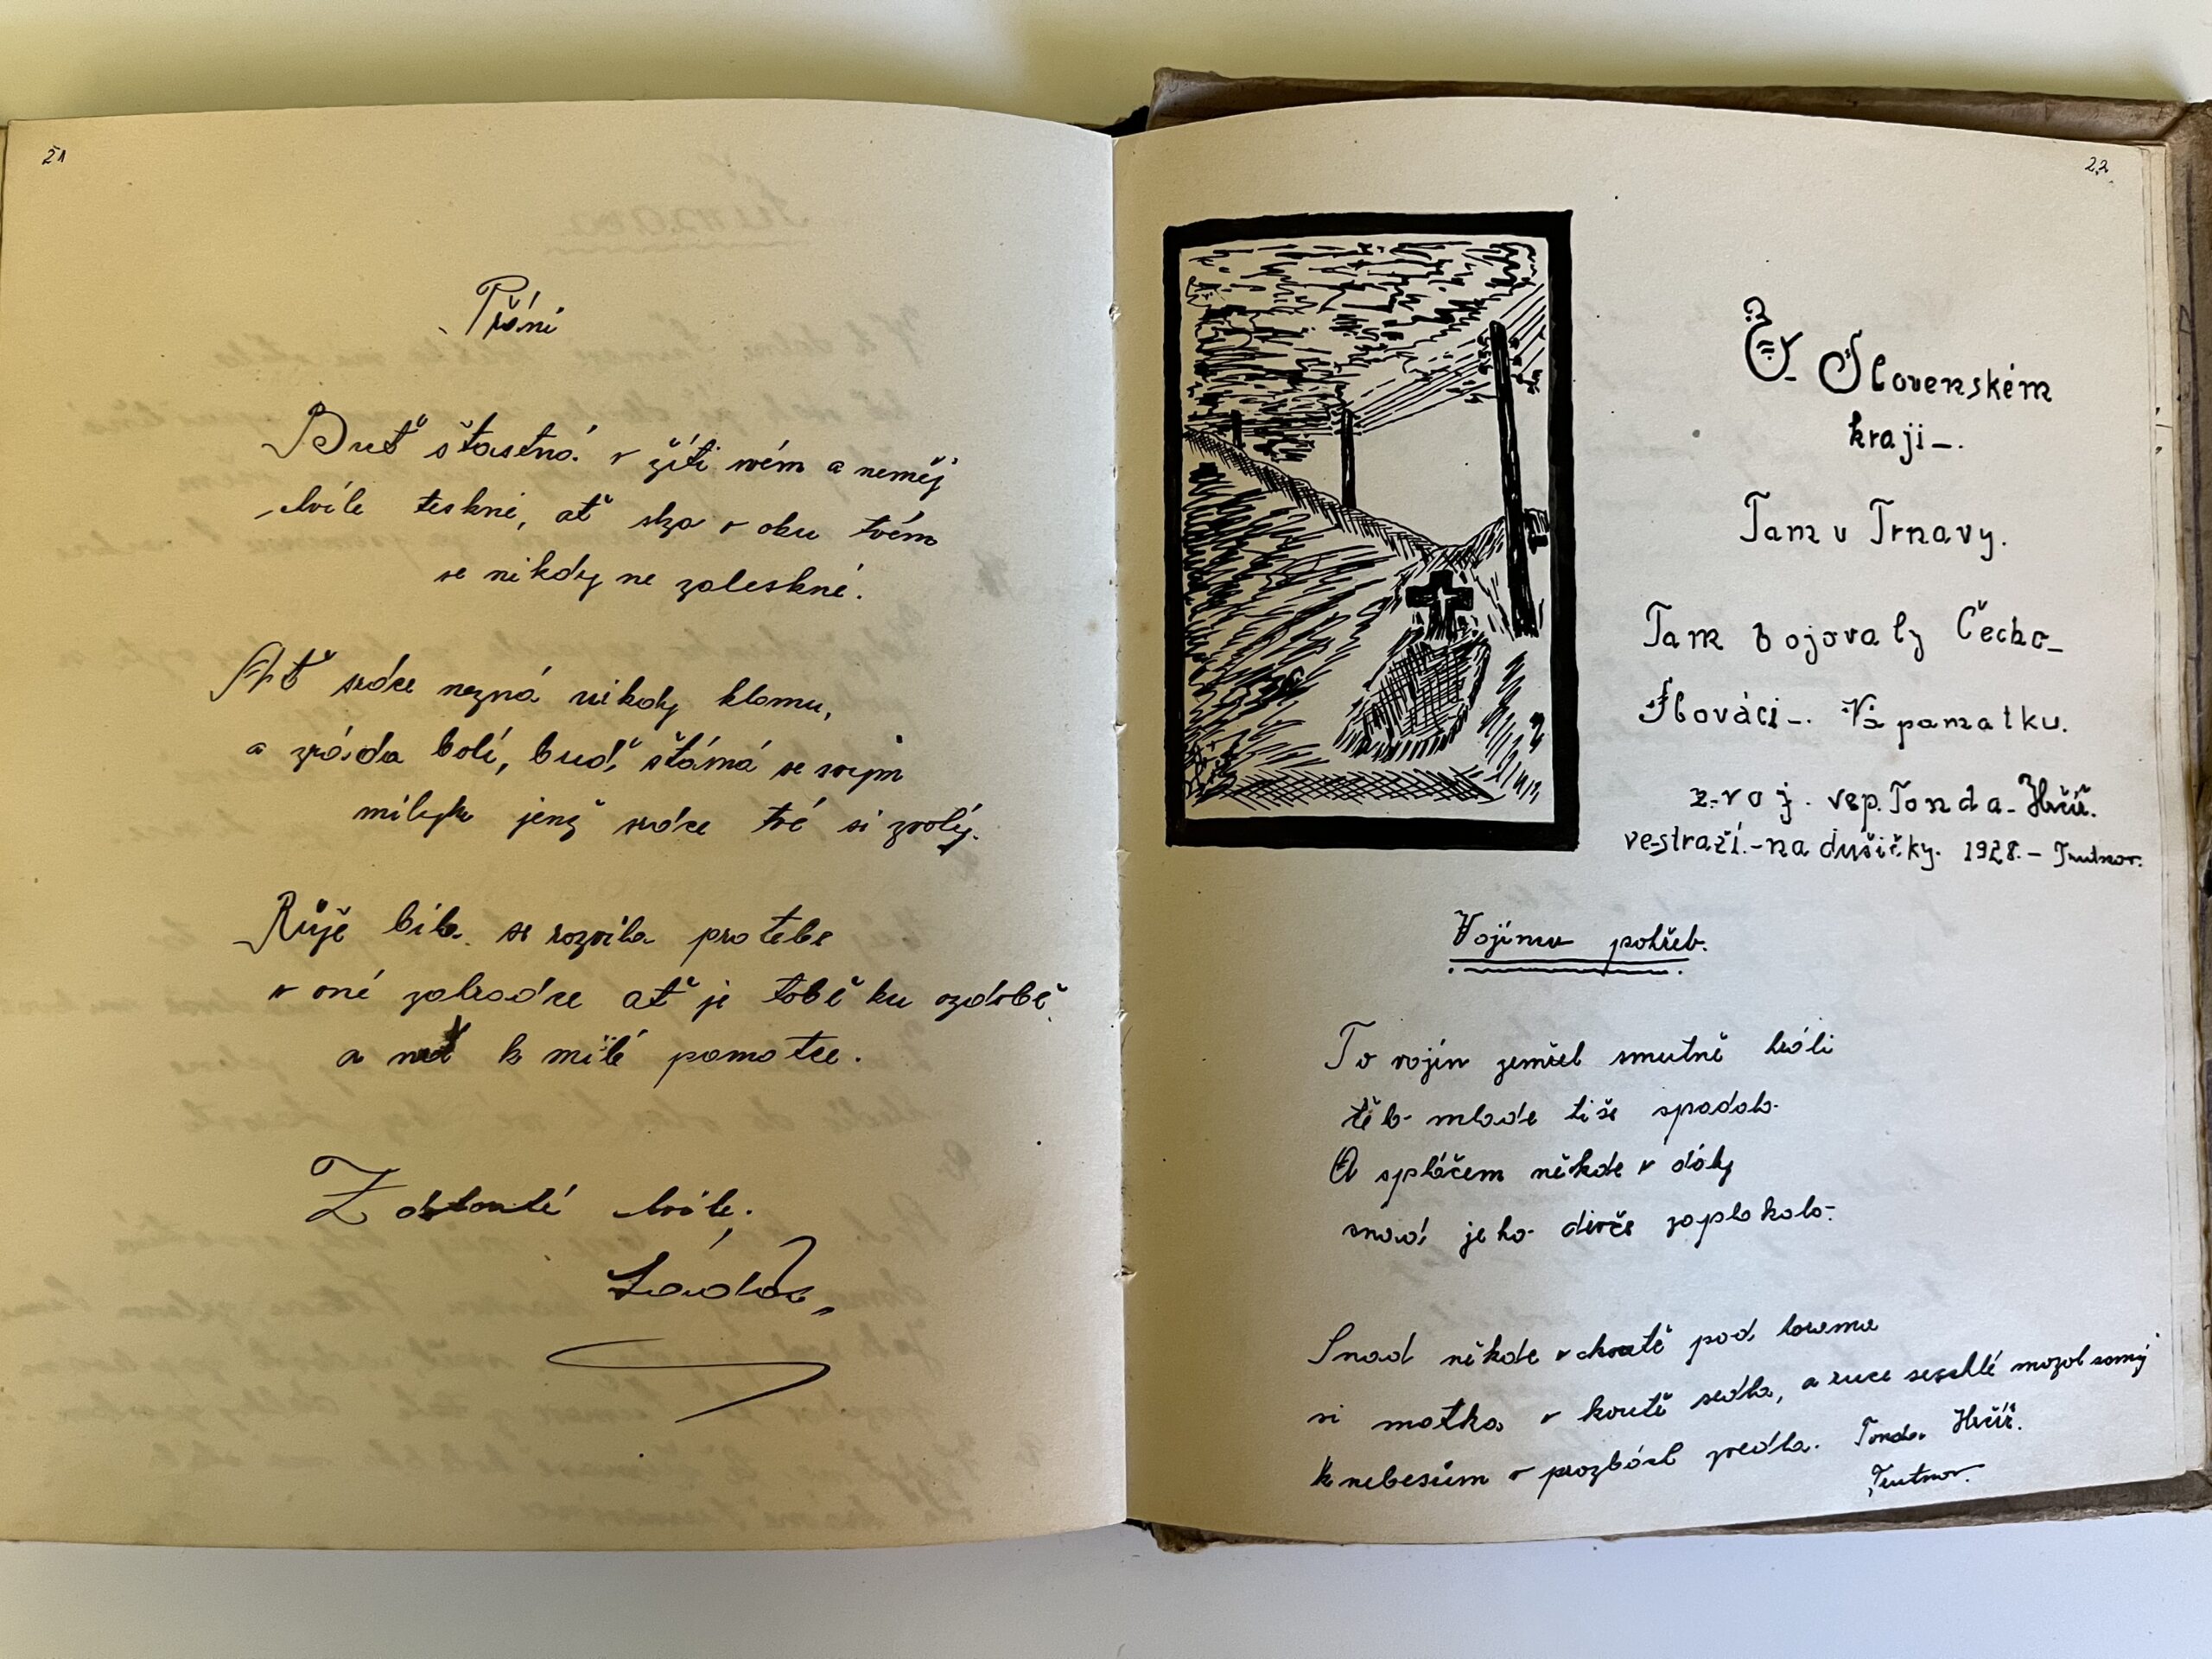 21
Přání
Buť štastná v žíti svém a neměj
chvíle teskné, ať slza v oku tvém
se nikdy ne zaleskné.
Ať srdce nezná nikdy klamu,
a zráda bolí, buď štámá se svým
milým jenž srdce tvé si zvolý.
Růže bíla se rozvila pro tebe
v oné zahradce ať je tobě ku ozdobě
a k milé pamatce.
Z dlouhé chvíle.
Láďa
22
V Slovenském
kraji -.
Tam u Trnavy.
Tam bojovaly Čecho-
Slováci -. Na pamatku.
voj. vsp. Tonda - Hrčíř.
ve-straží.-na dušičky. 1928. - Trutnov.
Vojínův pohřeb.
To vojín zemřel smutně hráli
tělo mlade tiše spadalo
A spláčem někde v dály
snad jeho divče zaplakalo.
Snad někde v chatě pod horama
si matka v koutě sedla, a ruce seschlé mozol samý
k nebesům v prozbách zvedla. Tonda Hrčíř.
Trutnov.